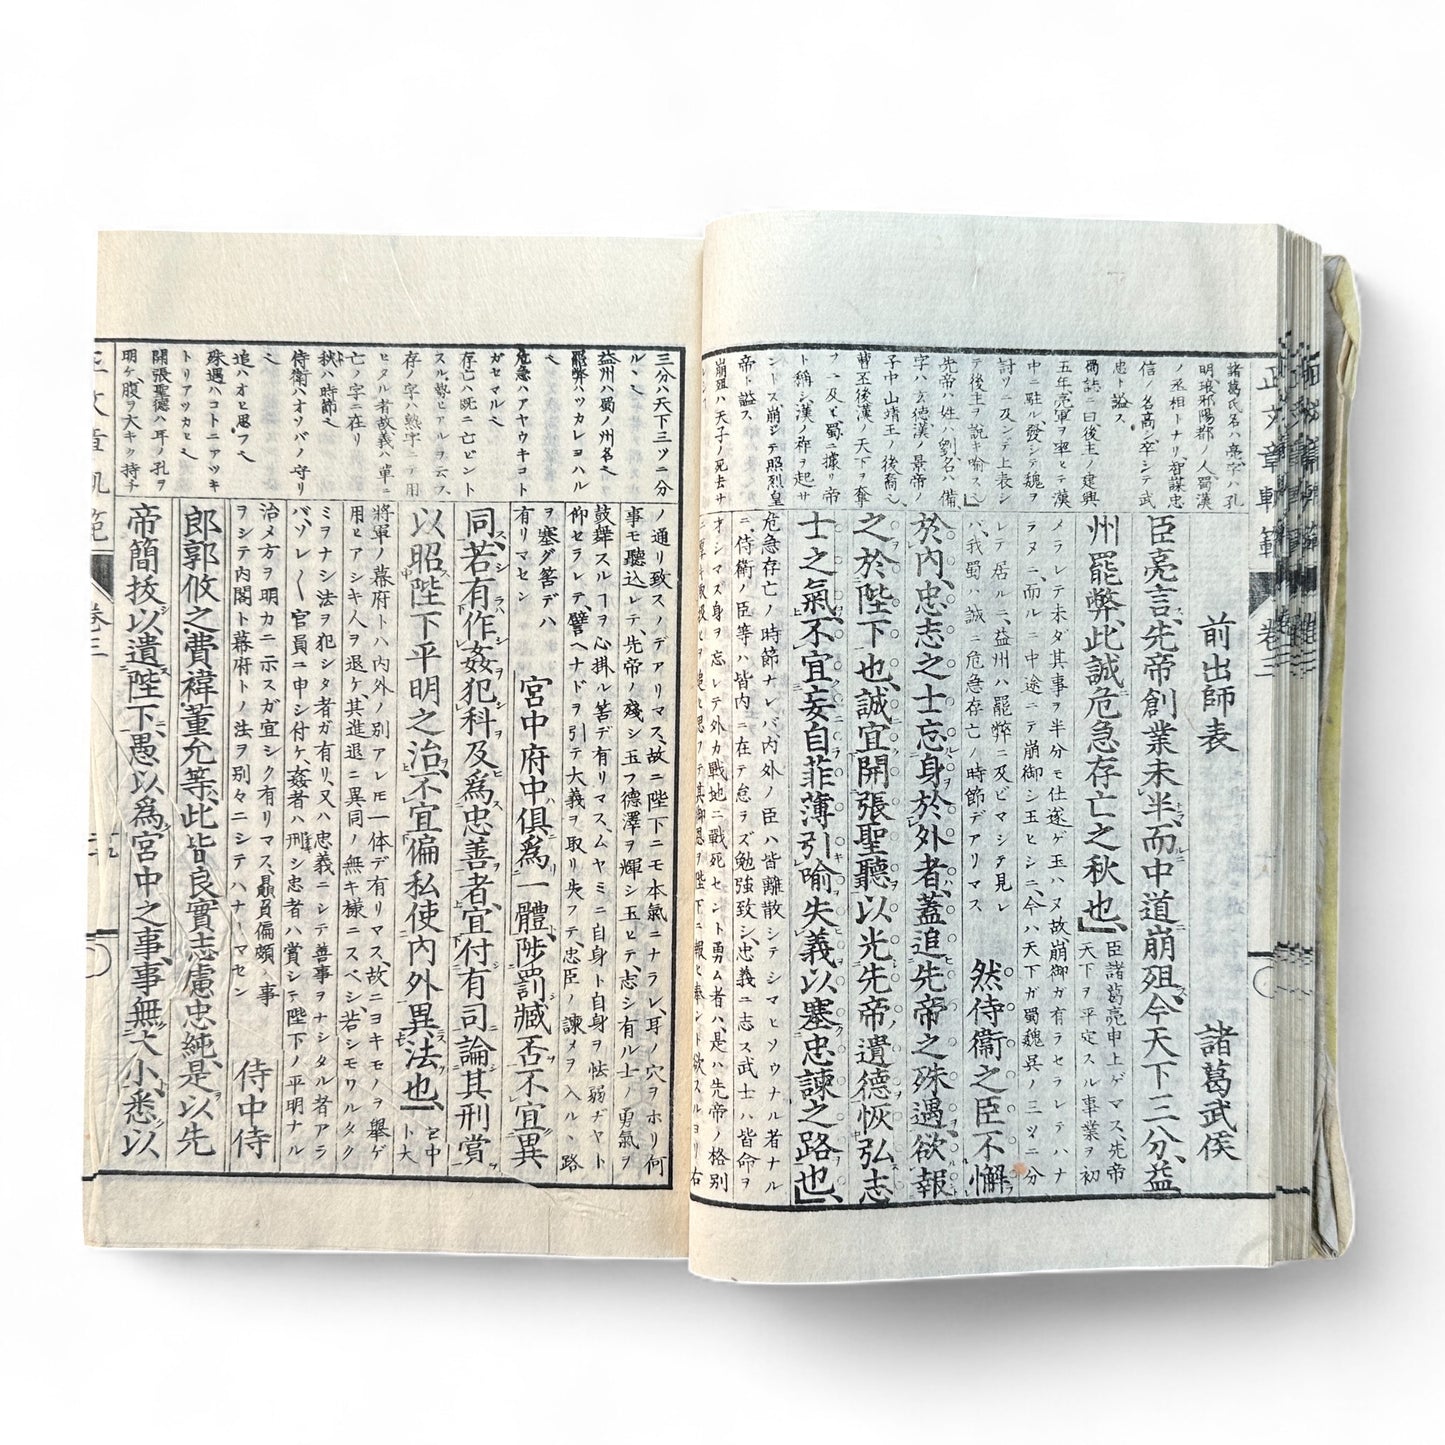 正文章軌範
卷三
諸葛氏名ハ亮字ハ孔
明琅邪陽都ノ人蜀漢
ノ丞相トナリ智謀忠
信ノ名高ク卒シテ武
忠ト諡ス
蜀誌ニ曰後主ノ建興
五年亮軍ヲ率ヒテ漢
中ニ駐ル發シテ魏ヲ
討ツニ及ンデ上表シ
テ後主ヲ説キ喩ス
先帝ハ姓ハ劉名ハ備
字ハ玄德漢ノ景帝ノ
子中山靖王ノ後裔
曹丕後漢ノ天下ヲ奪
フニ及ビ蜀ニ據リ帝
ト稱シ漢ノ祚ヲ起サ
ントス崩ジテ照烈皇
帝ト諡ス
崩殂ハ天子ノ死去サ
前出師表
諸葛武侯
臣亮言先帝創業未半而中道崩殂今天下三分益
州罷弊此誠危急存亡之秋也
臣諸葛亮申上ゲマス先帝
天下ヲ平定スル事業ヲ初
メラレテ未ダ其事ヲ半分モ仕遂ゲ玉ハヌ故崩御ガ有ラセラレテハナ
ラヌニ而ルニ中途ニテ崩御シ玉ヒシニ今ハ天下ガ蜀魏呉ノ三ツニ分
レテ居ルニ益州ハ罷弊ニ及ビマシテ見レ
バ我蜀ハ誠ニ危急存亡ノ時節デアリマス
然侍衞之臣不懈
於內忠志之士忘身於外者蓋追先帝之殊遇欲報
之於陛下也誠宜開張聖聽以光先帝遺德恢弘志
士之氣不宜妄自菲薄引喻失義以塞忠諫之路也
危急存亡ノ時節ナレバ內外ノ臣ハ皆離散シテシマヒソウナル者ナル
ニ侍衞ノ臣等ハ皆內ニ在テ怠ラズ勉強致シ忠義ニ志ス武士ハ皆命ヲ
オシマズ身ヲ忘レテ外カ戰地ニ戰死セントス勇ム者ハ是ハ先帝ノ格別
三分ハ天下三ツニ分
ルヽ
益州ハ蜀ノ州名
罷弊ハツカレヨハル
危急ハアヤウキコト
ガセマル
存亡ハ既ニ亡ビント
スル勢ヒアルヲ云フ
存ノ字ハ熟字ニテ用
ヒタル者故義ハ單ニ
亡ノ字ニ在リ
秋ハ時節
侍衞ハオソバノ守リ
追ハオヒ思フ
殊遇ハコトニアツキ
トリアツカヒ
開張聖德ハ耳ノ孔ヲ
明ケ腹ヲ大キク持チ
ノ通リ致スノデアリマス故ニ陛下ニモ本氣ニナラレ耳ノ穴ヲホリ何
事モ聽込レテ先帝ノ殘シ玉フ德澤ヲ輝シ玉ヒテ志シ有ル士ノ勇氣ヲ
鼓舞スルヿヲ心掛ル筈デ有リマスムヤミニ自身ト自身ヲ怯弱ヂヤト
仰セラレテ譬ヘナドヲ引テ大義ヲ取リ失フテ忠臣ノ諫メヲ入ルヽ路
ヲ塞グ筈デハ
有リマセン
宮中府中俱爲一體陟罰臧否不宜異
同若有作姦犯科及爲忠善者宜付有司論其刑賞
以昭陛下平明之治不宜偏私使內外異法也
將軍ノ幕府トハ內外ノ別アレモ一体デ有リマス故ニヨキモノヲ舉ゲ
用ヒアシキ人ヲ退ケ其進退ニ異同ノ無キ樣ニスベシ若シモワルタク
ミヲナシ法ヲ犯シタ者ガ有リ又ハ忠義ニシテ善事ヲナシタル者アラ
バソレ〱官員ニ申シ付ケ姦者ハ刑シ忠者ハ賞シテ陛下ノ平明ナル
治メ方ヲ明カニ示スガ宜シク有リマス贔負偏頗ノ事
ヲシテ內閣ト幕府トノ法ヲ別々ニシテハナリマセン
侍中侍
郎郭攸之費褘董允等此皆良實志慮忠純是以先
帝簡拔以遺陛下愚以爲宮中之事事無大小悉以
正文章軌範
卷三